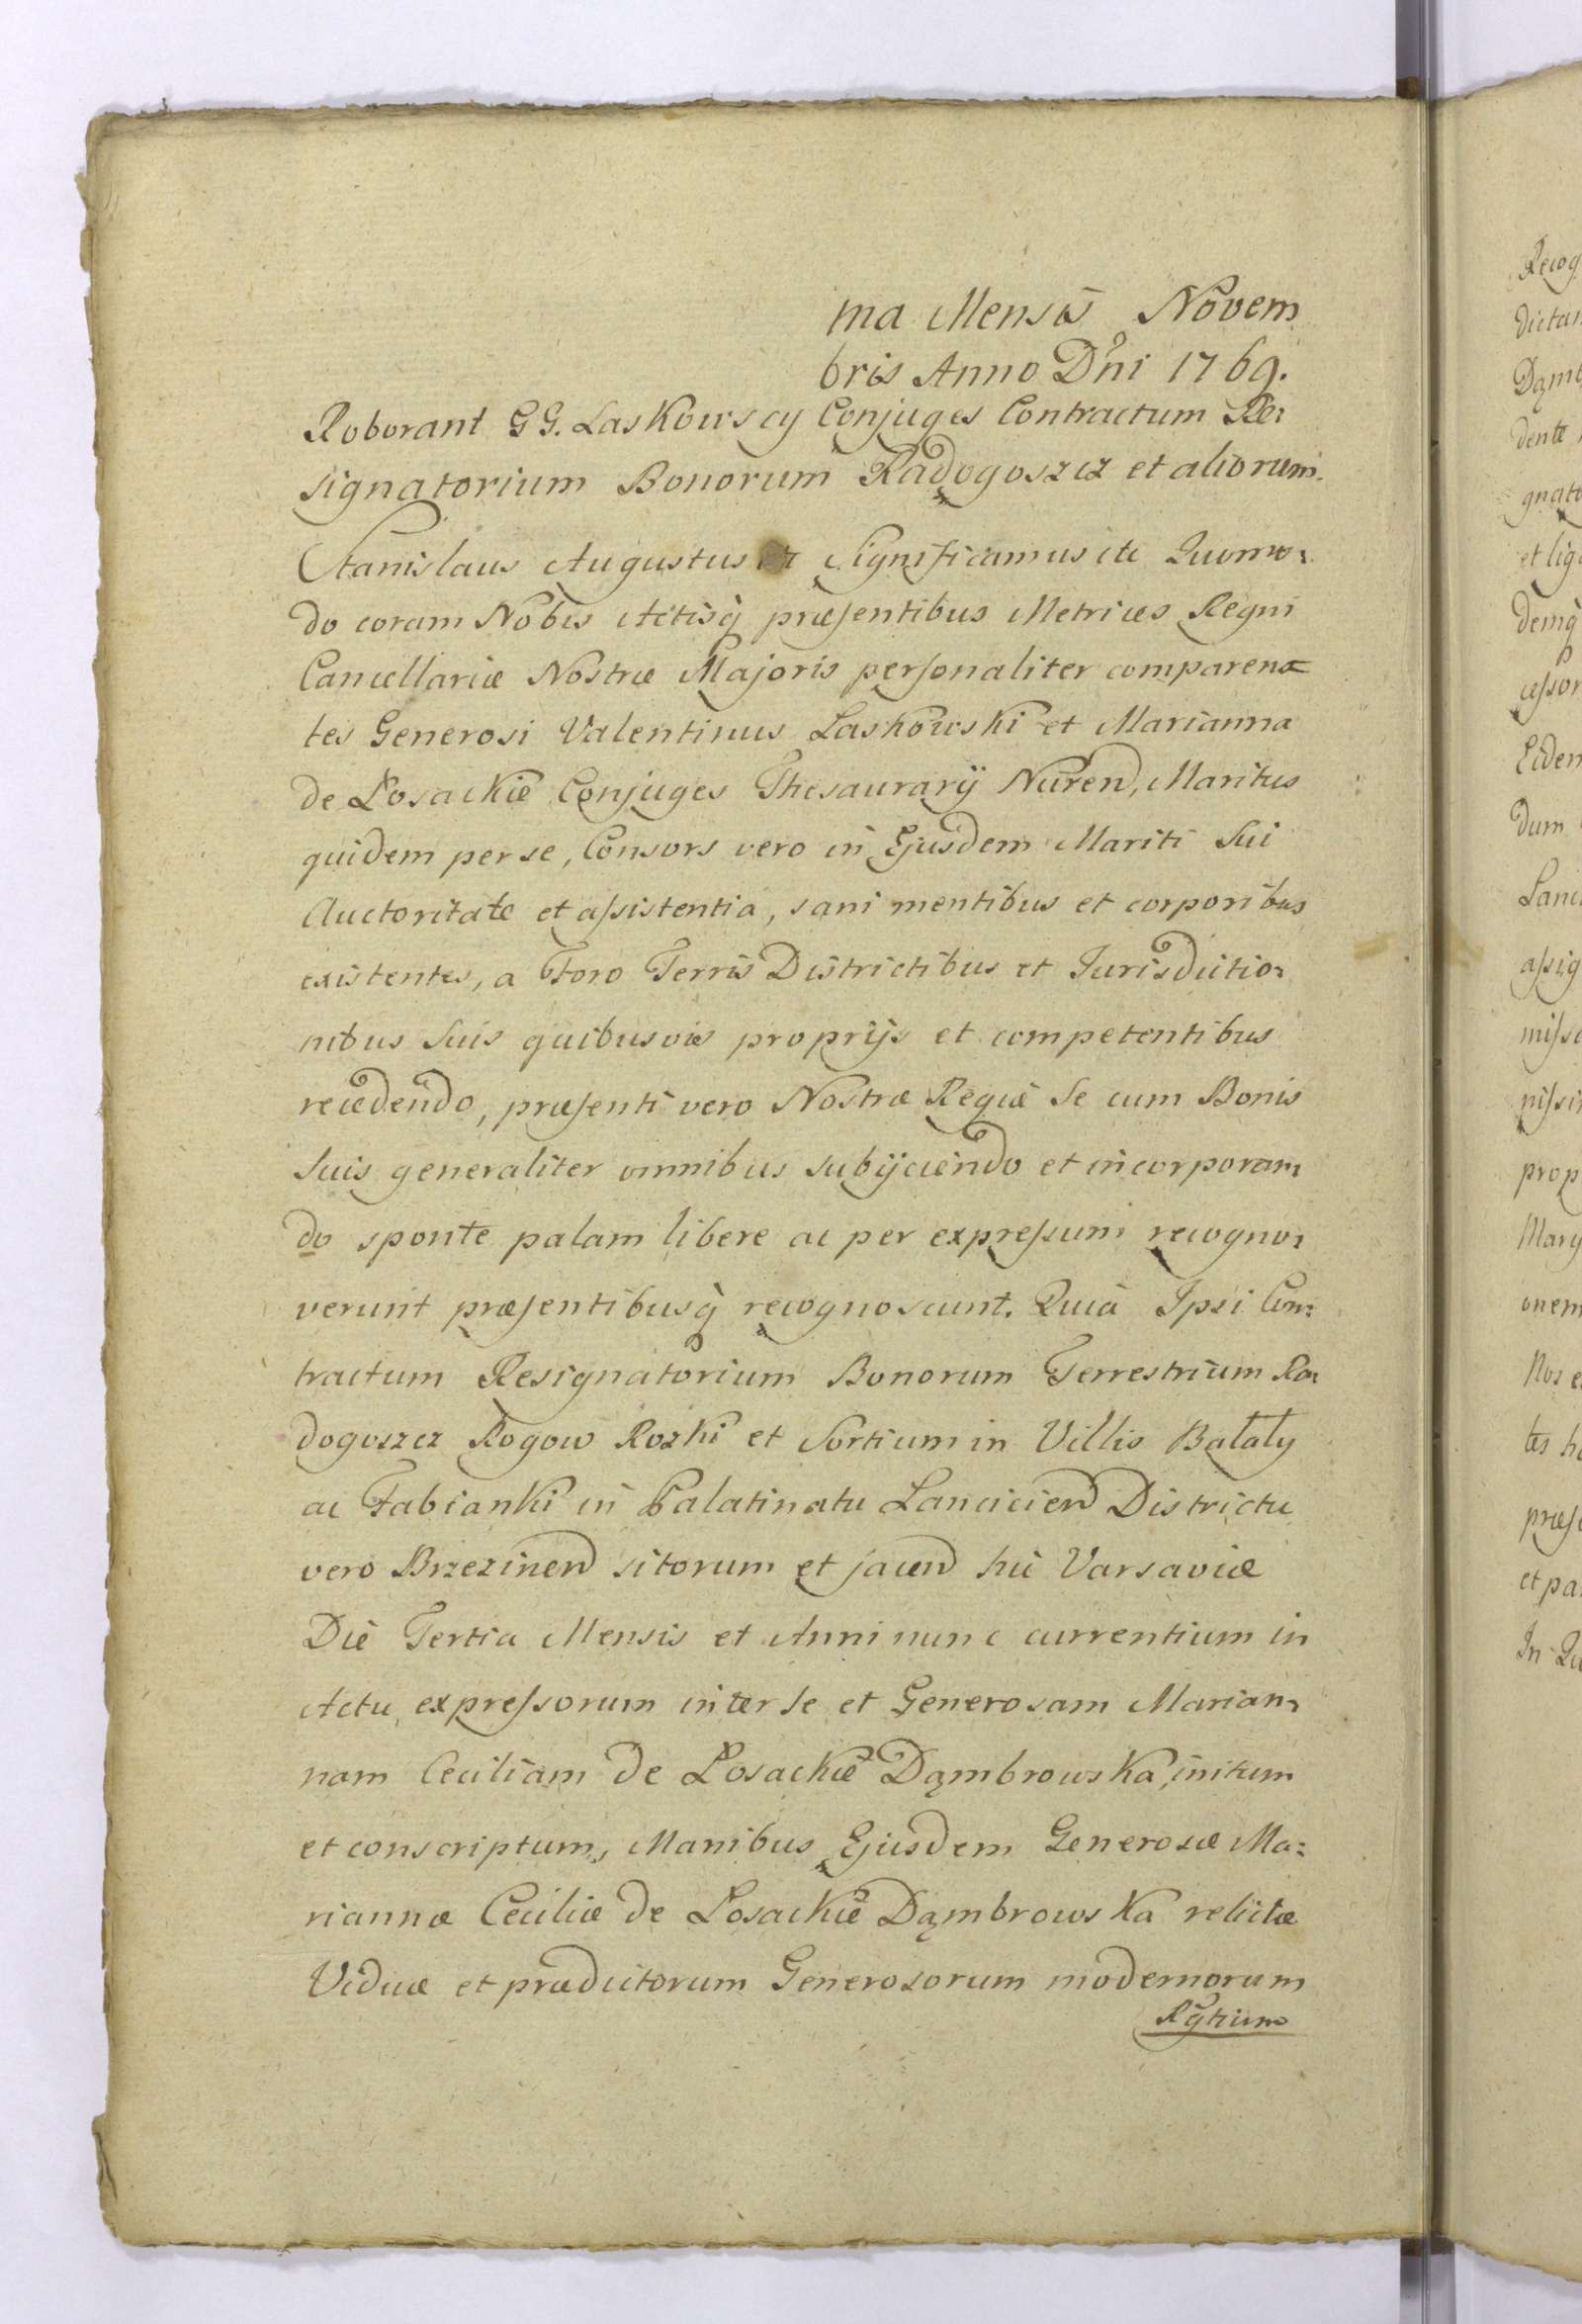 ma Mensis Novem
bris Anno Dni 1769.
Roborant GG. Laskowscy Conjuges Contractum Re:
signatorium Bonorum Radogoszcz et aliorum.
Stanislaus Augustus Significamus etc Quomo:
do coram Nobis Actisq præsentibus Metrices Regni
Cancellariæ Nostræ Majoris personaliter comparen=
tes Generosi Valentinus Laskowski et Marianna
de Łosackie Conjuges Thesaurarÿ Nuren, Maritus
quidem per se, Consors vero in Ejusdem Mariti Sui
Auctoritate et assistentia, sani mentibus et corporibus
existentes, a Foro Terris Districtibus et Jurisdictio:
nibus Suis quibusvis proprÿs et competentibus
recedendo, præsenti vero Nostræ Regiæ Se cum Bonis
Suis generaliter omnibus subÿciendo et incorporan:
do sponte palam libere ac per expressum recogno:
verunt præsentibusq recognoscunt. Quia Ipsi Con:
tractum Resignatorium Bonorum Terrestrium Ra:
dogoszcz Rogow Rozki et Sortium in Villis Bałaty
ac Fabianki in Palatinatu Lancicien Districtu
vero Brzezinen sitorum et jacen hic Varsaviæ
Die Tertia Mensis et Anni nunc currentium in
Actu expressorum inter Se et Generosam Marian:
nam Ceciliam de Łosackie Dąmbrowska, initum
et conscriptum, Manibus Ejusdem Generosæ Ma:
riannæ Ceciliæ de Łosackie Dąmbrowska relictæ
Viduæ et prædictorum Generosorum modernorum
Rgtium
Recog
dictar
Dąmb
dente
gnato
et lig
demq
cessor
Eiden
dum
Lanc
assig
misso
nissi
prop
Mary
onem
Nos e
tes h
præs
et pa
In Qu